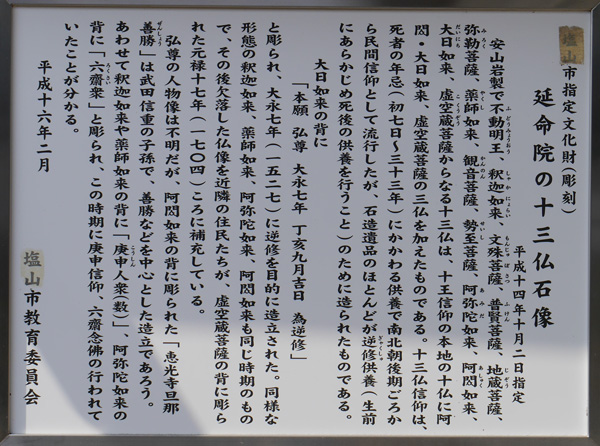 塩山市指定文化財(彫刻)
延命院の十三仏石像
平成十四年十月二日指定
安山岩製で不動明王、釈迦如来、文殊菩薩、普賢菩薩、地蔵菩薩、
弥勒菩薩、薬師如来、観音菩薩、勢至菩薩、阿弥陀如来、阿閦如来、
大日如来、虚空蔵菩薩からなる十三仏は、十王信仰の本地の十仏に阿
閦・大日如来、虚空蔵菩薩の三仏を加えたものである。十三仏信仰は、
死者の年忌(初七日〜三十三年)にかかわる供養で南北朝後期ごろか
ら民間信仰として流行したが、石造遺品のほとんどが逆修供養(生前
にあらかじめ死後の供養を行うこと)のために造られたものである。
大日如来の背に
「本願 弘尊 大永七年 丁亥九月吉日 為逆修」
と彫られ、大永七年(一五二七)に逆修を目的に造立された。同様な
形態の釈迦如来、薬師如来、阿弥陀如来、阿閦如来も同じ時期のもの
で、その後欠落した仏像を近隣の住民たちが、虚空蔵菩薩の背に彫ら
れた元禄十七年(一七〇四)ころに補充している。
弘尊の人物像は不明だが、阿閦如来の背に彫られた「恵光寺旦那
善勝」は武田信重の子孫で、善勝などを中心とした造立であろう。
あわせて釈迦如来や薬師如来の背に「庚申人衆(数)」、阿弥陀如来の
背に「六齋衆」と彫られ、この時期に庚申信仰、六齋念佛の行われて
いたことが分かる。
平成十六年二月
塩山市教育委員会